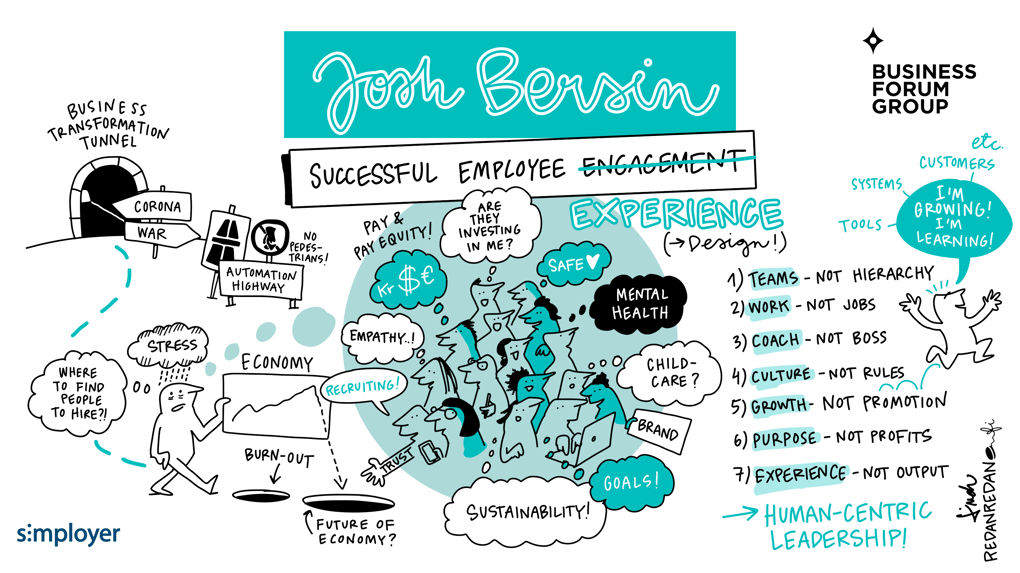 Josh Bersin
BUSINESS
FORUM
GROUP
SUCCESSFUL EMPLOYEE ENGAGEMENT
EXPERIENCE
(→ Design!)
BUSINESS
TRANSFORMATION
TUNNEL
CORONA
WAR
NO
PEDES-
TRIANS!
AUTOMATION
HIGHWAY
STRESS
WHERE
TO FIND
PEOPLE
TO HIRE?!
ECONOMY
BURN-OUT
FUTURE OF
ECONOMY?
PAY &
PAY EQUITY!
Kr $ €
ARE
THEY
INVESTING
IN ME?
SAFE
MENTAL
HEALTH
EMPATHY..!
RECRUITING!
CHILD-
CARE?
BRAND
TRUST
GOALS!
SUSTAINABILITY!
etc.
CUSTOMERS
SYSTEMS
TOOLS
I'M
GROWING!
I'M
LEARNING!
1) TEAMS - NOT HIERARCHY
2) WORK - NOT JOBS
3) COACH - NOT BOSS
4) CULTURE - NOT RULES
5) GROWTH - NOT PROMOTION
6) PURPOSE - NOT PROFITS
7) EXPERIENCE - NOT OUTPUT
→ HUMAN-CENTRIC
LEADERSHIP!
REDANREDAN
s:mployer